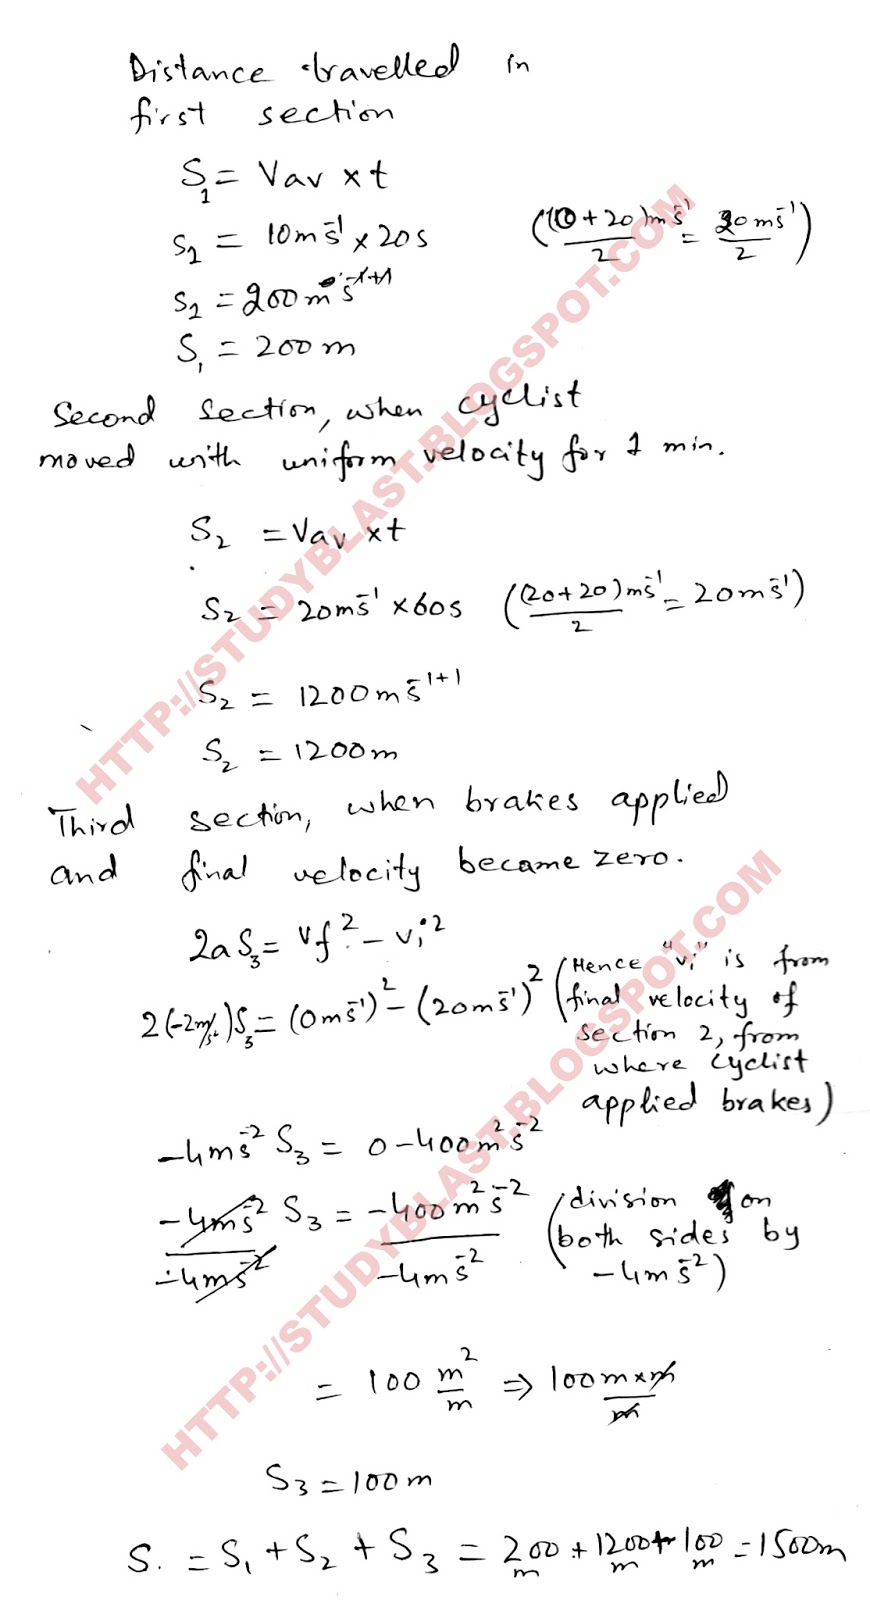 Distance travelled in
first section
S₁ = Vav x t
S₁ = 10ms⁻¹ x 20s ((0+20)ms⁻¹/2 = 20ms⁻¹/2)
S₁ = 200ms⁻¹⁺¹
S₁ = 200m
Second section, when cyclist
moved with uniform velocity for 1 min.
S₂ = Vav x t
S₂ = 20ms⁻¹ x 60s ((20+20)ms⁻¹/2 = 20ms⁻¹)
S₂ = 1200ms⁻¹⁺¹
S₂ = 1200m
Third section, when brakes applied
and final velocity became zero.
2aS₃ = vf² - vi²
2(-2m/s²)S₃ = (0ms⁻¹)² - (20ms⁻¹)² (Hence "vi" is from
final velocity of
section 2, from
where cyclist
applied brakes)
-4ms⁻² S₃ = 0-400m²s⁻²
-4ms⁻² S₃/-4ms⁻² = -400m²s⁻²/-4ms⁻² (division on
both sides by
-4ms⁻²)
= 100 m²/m ⇒ 100m x m/m
S₃ = 100m
S. = S₁ + S₂ + S₃ = 200m + 1200m + 100m = 1500m
HTTP://STUDYBLAST.BLOGSPOT.COM
HTTP://STUDYBLAST.BLOGSPOT.COM